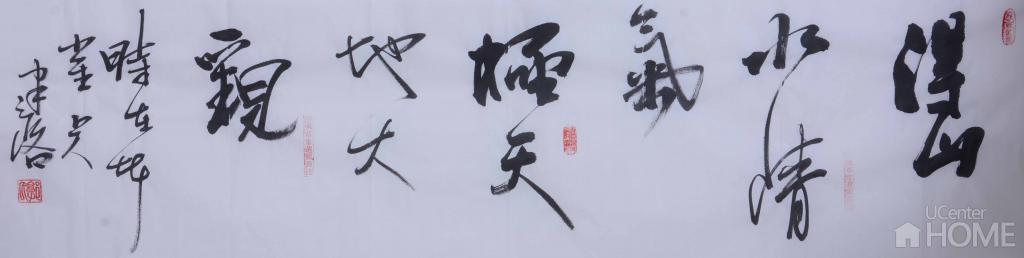 得山
水清
氣
極天
地大
觀
時在
UCenter
HOME